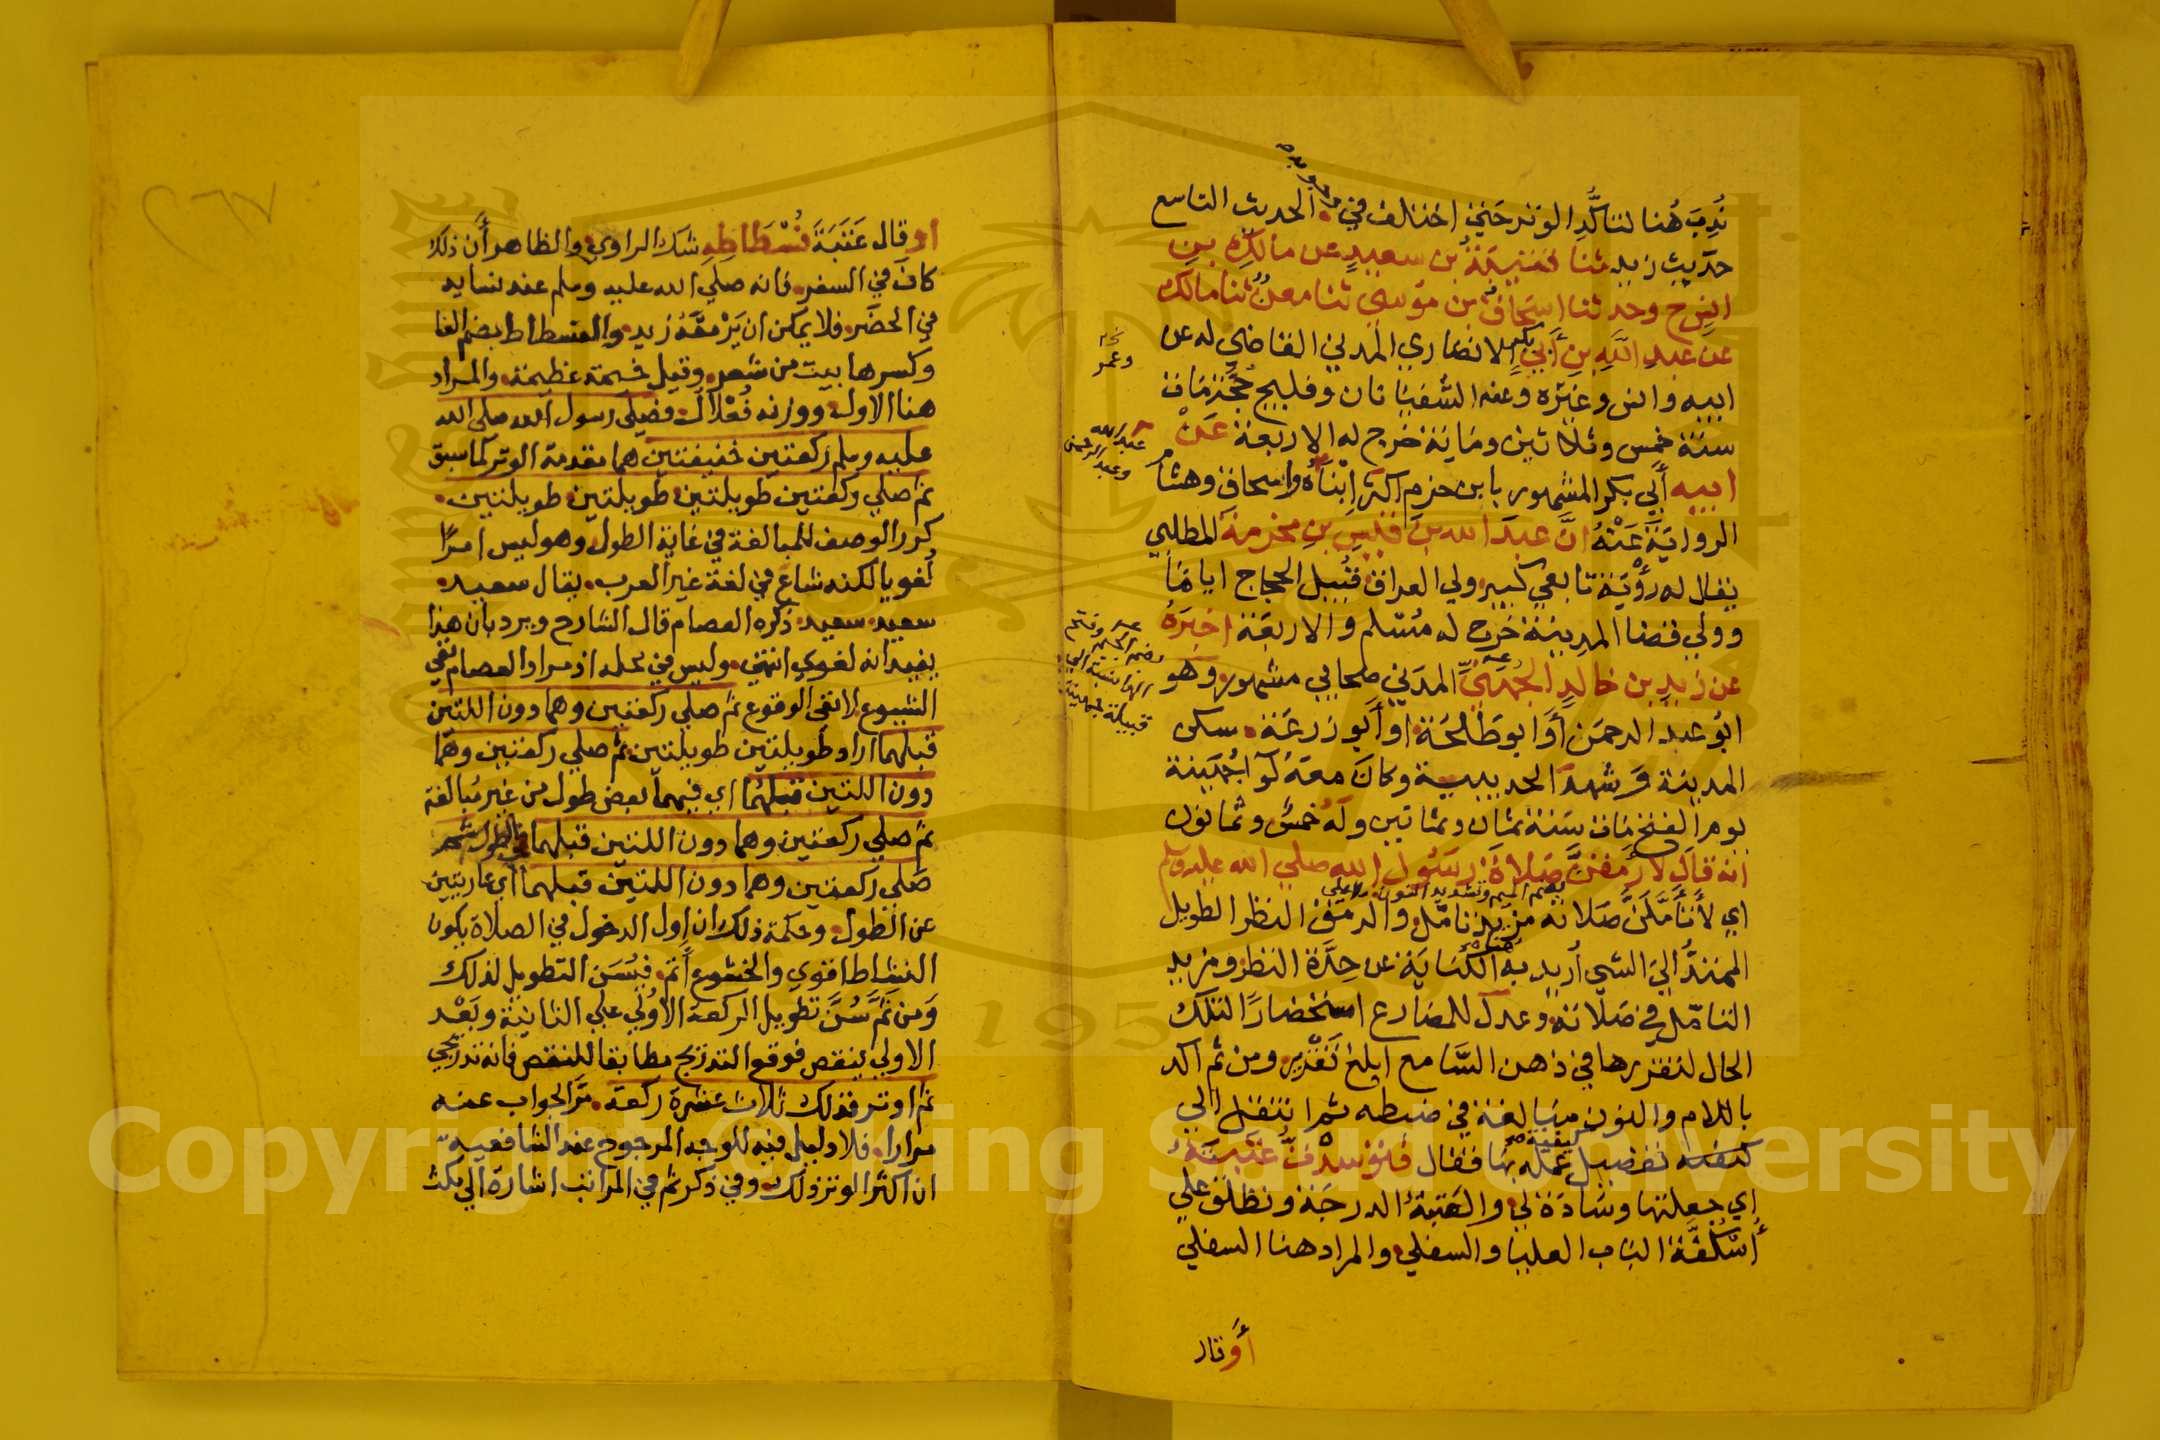 نُدِبَ هُنا لتاكُّدِ الوتر حَتي اختلف في وجوبه الحديث التاسع
حدِيث زيد ثنا قتيبَةُ بن سعيدٍ عن مالكِ بنِ
انسٍ ح وحدثنا اسحَاقُ بن مَوسي ثنا معنٌ ثنا مالك
عن عبدِ اللَّهِ بنِ أَبي بكرٍ الانصاري المدني القاضي له عن
ابيه وانس وغيره وعنه السُّفيانان وفليح حُجَّة مَات
سنَة خمس وثلاثين ومَاية خرج له الاربعَة عَنْ
ابيه أَبي بكر المشهور بابن حزم اكثر اِبْنَاهُ واسحاق وهشام
الروايَة عَنْهُ انَّ عبدَ الله بنَ قيسِ بنِ مخرمة المطلبي
يقال له رؤْيَة تابعي كبير ولي العراق قُبيل الحجاج اياما
وولي قضا المدينة خرج له مُسْلم والاربعَة اخبَرَهُ
عن زيدِ بن خالدٍ الجُهَنيِّ المدَني صحابي مشهور وهو
ابُو عبد الرحمَن أَو ابو طَلحَة او أَبو زرعَة سكن
المدينة وَشهدَ الحديبية وكانَ معَهُ لوَآ جُهَينة
يوم الفتح مَات سَنة ثمان وثمانين ولَهُ خمسٌ وثمانون
انه قالَ لارمقنَّ صَلاةَ رسُول الله صلي الله عليه وسلم
بضم الميم وتشديد النون
اي لأَتأَمَّلَنَّ صَلاته مزيد تأمّل والرمق النظر الطويل
الممتدُّ اليَ الشي أُريد به هنا الكنَايَة عن حِدَّة النظر ومزيد
التامّل في صَلاته وعدل للمضارع استحضارًا لتلك
الحال لتقرّرها في ذهن السَّامع ابلغ تَقْرير ومن ثم اكد
باللام والنون مبَالغة في ضبطه ثم انتقل الي
كيفية تفصيل عملهِ بها فقال فتوَسدْتُ عَتَبَتَهُ
اي جعلتها وسَادَة لي والعَتبةُ الدرجَة وتطلق علي
أُسْكُفَّة البَاب العليا والسفلي والمراد هنا السفلي
أَوقال
وعمر
عبد الله
وعبد الرحمن
بضم الجيم وفتح
الها نسبة الي
قبيلة جهينة
او قال عَتَبَةَ فُسْطَاطِهِ شك الراوي والظاهر أَن ذلك
كانَ في السفر فانه صلي الله عليه وسلم عند نسايه
في الحضَر فلا يمكن ان يَرْمقَهُ زيد والفسطاط بضم الفا
وكسرها بيت من شعر وقيل خيمة عظيمة والمراد
هنا الاول ووزنه فُعْلال فصلي رسول الله صلي الله
عليه وسلم ركعتين خفيفتين هما مقدمة الوتر كما سبق
ثم صلي ركعتين طويلتين طويلتين طويلتين
كرر الوصف للمبالغة في غاية الطول وهو ليس امرًا
لُغويا لكنه شاع في لغة غير العرب يقال سعيد
سعيد سعيد ذكره العصام قال الشارح ويرد بان هذا
يفيد انه لغوي انتهي وليس في محله اذ مراد العصام نفي
الشيوع لا نفي الوقوع ثم صلي ركعتين وهما دون اللتين
قبلهما اراد طويلتين طويلتين ثم صلي ركعتين وهُما
دون اللتين قبلهُما اي فيهما بعض طول من غير مُبالغة
ثم صلي ركعتين وهما دون اللتين قبلهما في الطول ثم
صَلي ركعتين وهما دون اللتين قبلهما أَي عاريتين
عن الطول وحكمة ذلك ان اول الدخول في الصلاة يكون
النشاط اقوي والخشوع أَتم فيُسَن التطويل لذلك
وَمن ثَمَّ سُنَّ تطويل الركعة الاوُلي علي الثانيَة وبَعْد
الاولي ينقص فوقع التدريج مطابقا للنقص فانه تدريجي
ثم اوتر فذلك ثلاث عشرة ركعة مَرّ الجواب عنه
مرارا فلا دليل فيه للوجه المرجوح عند الشافعية
ان اكثر الوتر ذلك وفي ذكر ثم في المراتب اشارة الي مكث
٢٦٧
1957
Copyright © King Saud University